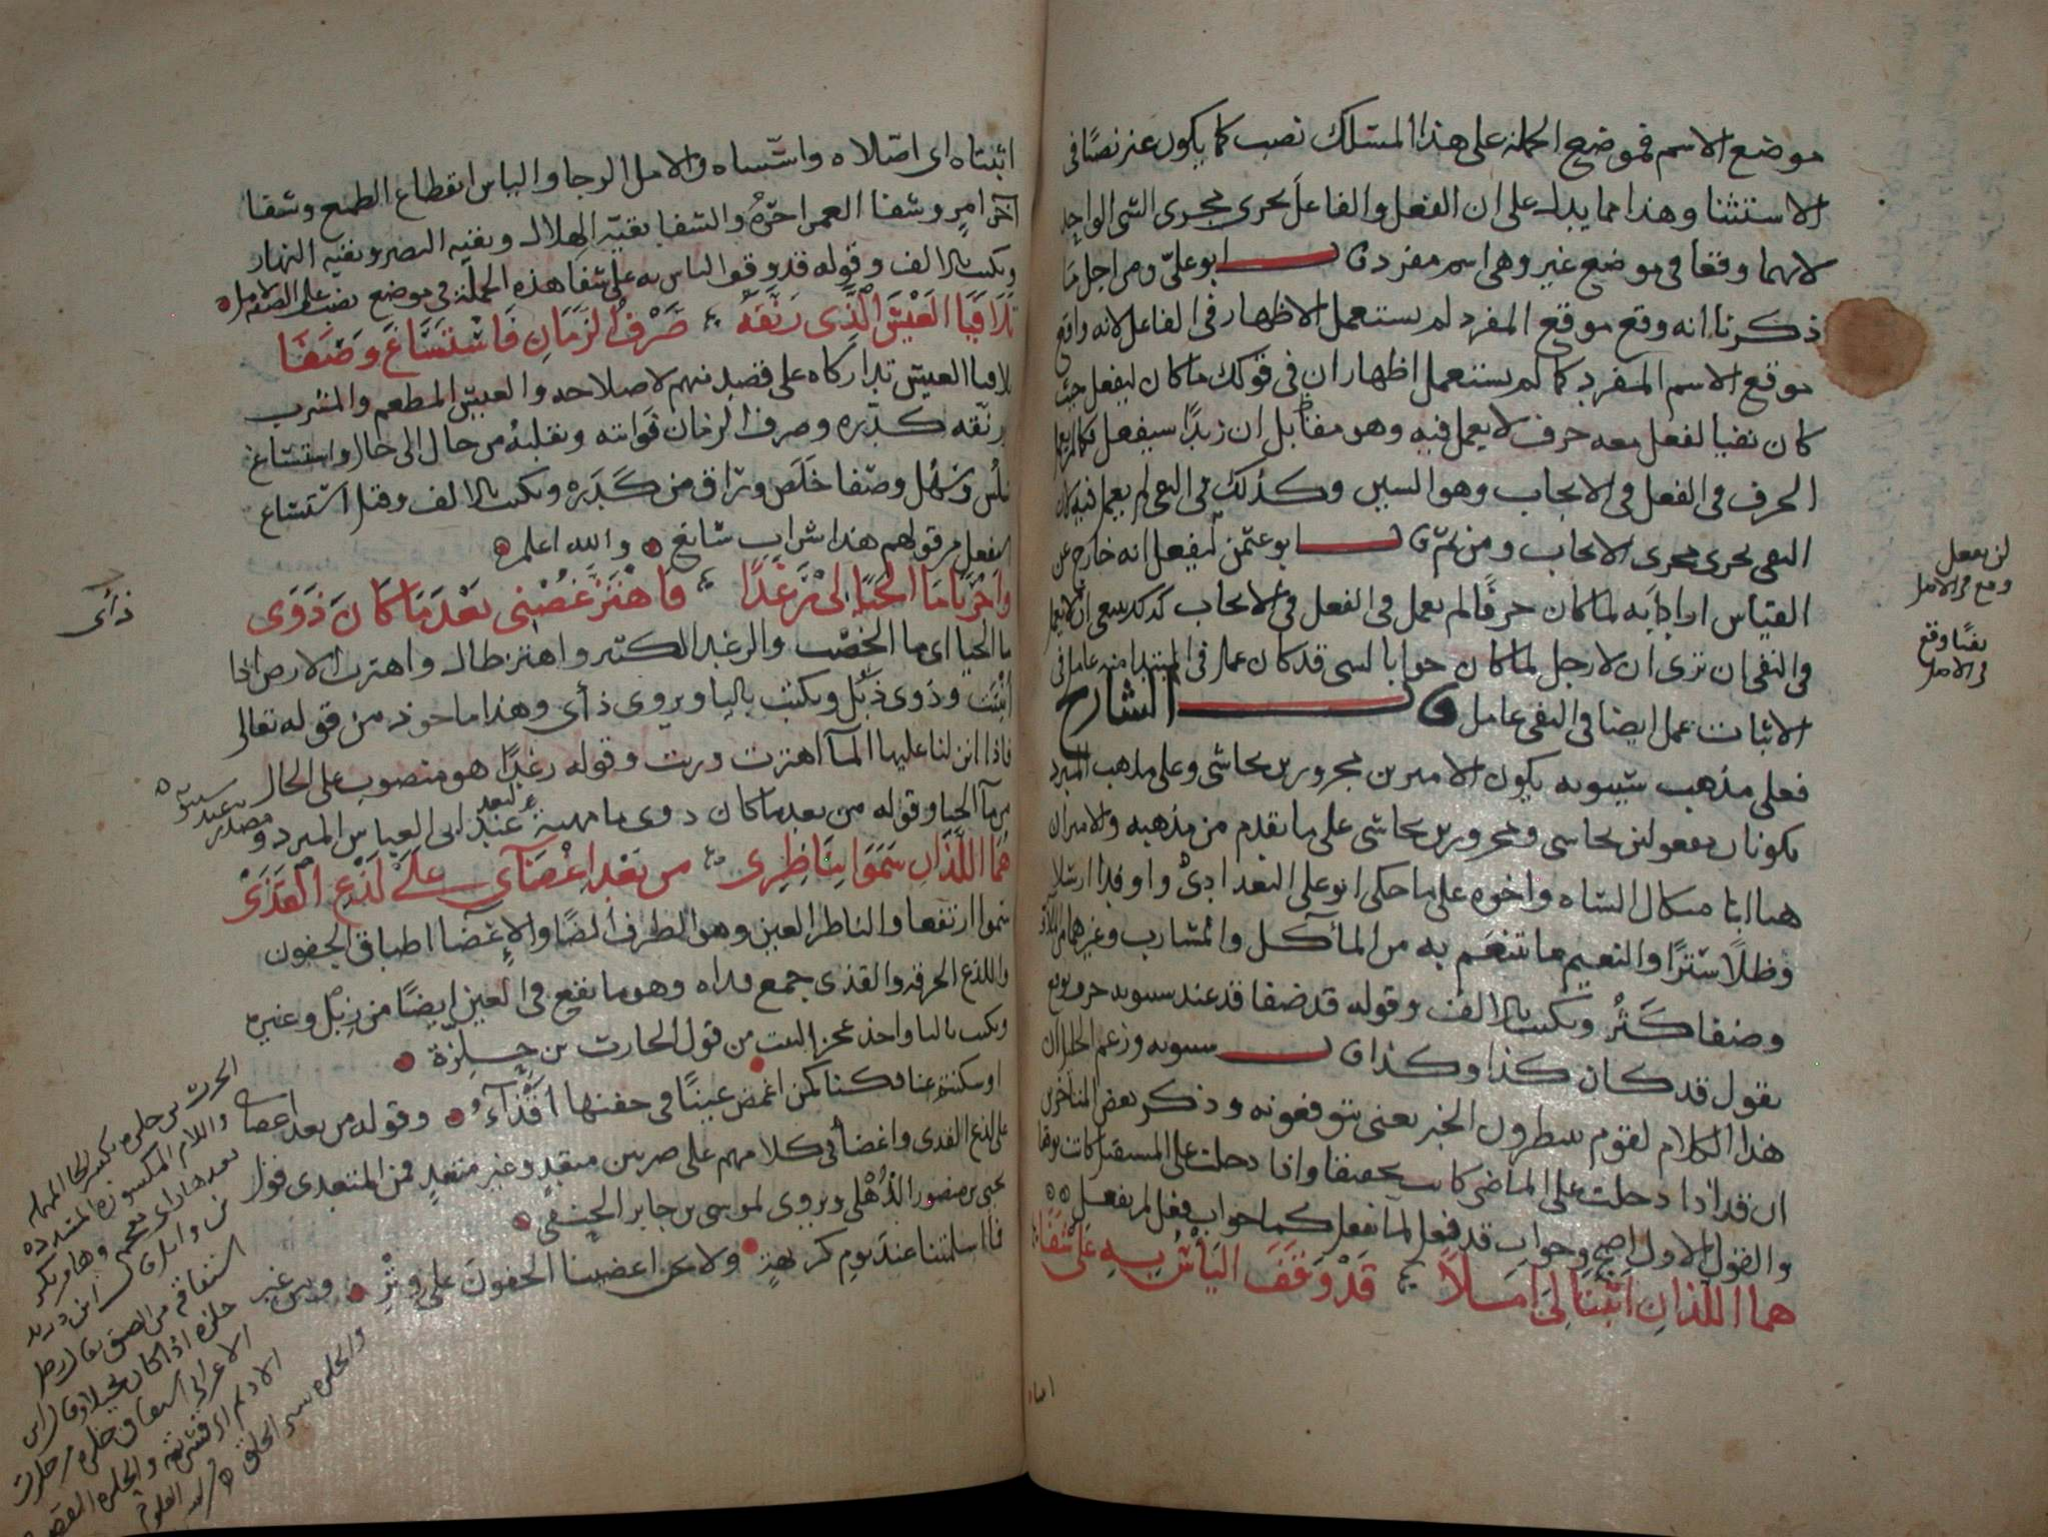 موضع الاسم فموضع الجملة على هذا المسلك نصب كما يكون غير نصبًا في
الاستثنا وهذا مما يدل على ان الفعل والفاعل يجرى مجرى الشى الواحد
لانهما وقعا في موضع غير وهى اسم مفرد قال ابو على ومن اجل ما
ذكرنا انه وقع موقع المفرد لم يستعمل الاظهار في الفاعل لانه واقع
موقع الاسم المفرد كما لم يستعمل اظهار ان في قولك ما كان ليفعل حيث
كان نفيا لفعل معه حرف لا يعمل فيه وهو مقابل ان زيدًا سيفعل فكما لم يعمل
الحرف في الفعل في الايجاب وهو السين وكذلك في النفى لم يعمل فيه لان
النفى يجرى مجرى الايجاب ومن ثم قال ابو عثمن ليفعل انه خارج عن
القياس اراد به لما كان حرفًا لم يعمل في الفعل في الايجاب كذلك ينبغى ان لا يعمل
في النفى ان ترى ان لا رجل لما كان جوابا لشى قد كان عمل في المبتدا منه عامل في
الاثبات عمل ايضا في النفى عامل قال الشارح
فعلى مذهب سيبويه يكون الاميرين مجرورين بحاشى وعلى مذهب المبرد
يكونان مفعولين بحاشى ومجرورين بحاشى على ما تقدم من مذهبه والاميران
هما ابنا ميكال الشاه واخوه على ما حكى ابو على البغدادى واوفدا ارسلا
وظلا سترًا والنعيم ما يتنعم به من المآكل والمشارب وغيرهما من
وضفا كثر ويكتب بالالف وقوله قد ضفا قد عند سيبويه حرف توقع
يقول قد كان كذا وكذا قال سيبويه وزعم الخليل ان
هذا الكلام لقوم ينتظرون الخبر يعنى يتوقعونه وذكر بعض المتاخرين
ان قد اذا دخلت على الماضى كانت تحقيقا واذا دخلت على المستقبل كانت توقعا
والقول الاول اصح وجواب قد فعل لما يفعل كما جواب فعل لم يفعل
هما اللذان اثبتا لى املاً قد وقف اليأس به على شفا
لن يفعل
وقع في الاصل
نفيًا وقع
في الاصل
اثبتاه اى اصّلاه واسّساه والامل الرجا والياس انقطاع الطمع وشفا
آخر امرٍ وشفا العمر اخره والشفا بقية الهلال وبقية البصر وبقية النهار
ويكتب بالالف وقوله قد وقف الياس به على شفا هذه الجملة في موضع نصب على الصفة لامل
تَلَافَيَا العَيْشَ الَّذِى رَنَّقَهُ صَرْفُ الزَّمَانِ فَاسْتَسَاغَ وَصَفَا
تلافيا العيش تداركاه على قصد منهم لاصلاحه والعيش المطعم والمشرب
ورنّقه كدّره وصرف الزمان فواته وتقلبه من حال الى حال واستساغ
سلس وسهل وصفا خلص وراق من كدره ويكتب بالالف وقيل استساغ
استفعل من قولهم هذا شراب سائغ والله اعلم
وَاجْرَيَا مَا الحَيَا لى رَغَدًا فَاهْتَزَّ غُصْنِى بَعْدَ مَا كَانَ ذَوَى
ما الحيا اى ما الخصب والرغد الكثير واهتز طال واهتزت الارض اذا
انبتت وذوى ذبل ويكتب باليا ويروى ذأى وهذا ماخوذ من قوله تعالى
فاذا انزلنا عليها المآ اهتزت وربت وقوله رغدًا هو منصوب على الحال
من مآ الحيا وقوله من بعد ما كان ذوى ما مهيئة لبعد عند ابى العباس المبرد و
مصدرية عند سيبويه
هُمَا اللَّذَانِ سَمَوَا بِنَاظِرِى من بَعْدِ اِغْضَآئى عَلَى لَذْعِ القَذَى
سموا ارتفعا والناظر العين وهو الطرف ايضًا والاغضا اطباق الجفون
واللذع الحرقة والقذى جمع قذاه وهو ما يقع في العين ايضًا من زبل وغيره
ويكتب باليا واخذ عجز البيت من قول الحارث بن حِلِّزة
او سكتم عنا فكنا كمن اغمض عينًا في جفنها اقذآء وقوله من بعد اغضاى
على لذع القذى واغضا في كلامهم على ضربين متعدٍ وغير متعدٍ فمن المتعدى قول
يحيى بن منصور الذهلى ويروى لموسى بن جابر الحنفى
فما اسلمتنا عند يوم كريهةٍ ولا نحن اغضينا الجفون على وترِ ومن غير
ذأى
الحرث بن حلزه بكسر الحا المهمله
واللام المكسورة المشدده
بعدها زاى معجمه وها من بكر
بن وايل قال ابن دريد
اشتقاقه من الضيق يقال رجل
حلزه اذا كان بخيلا وقال ابن